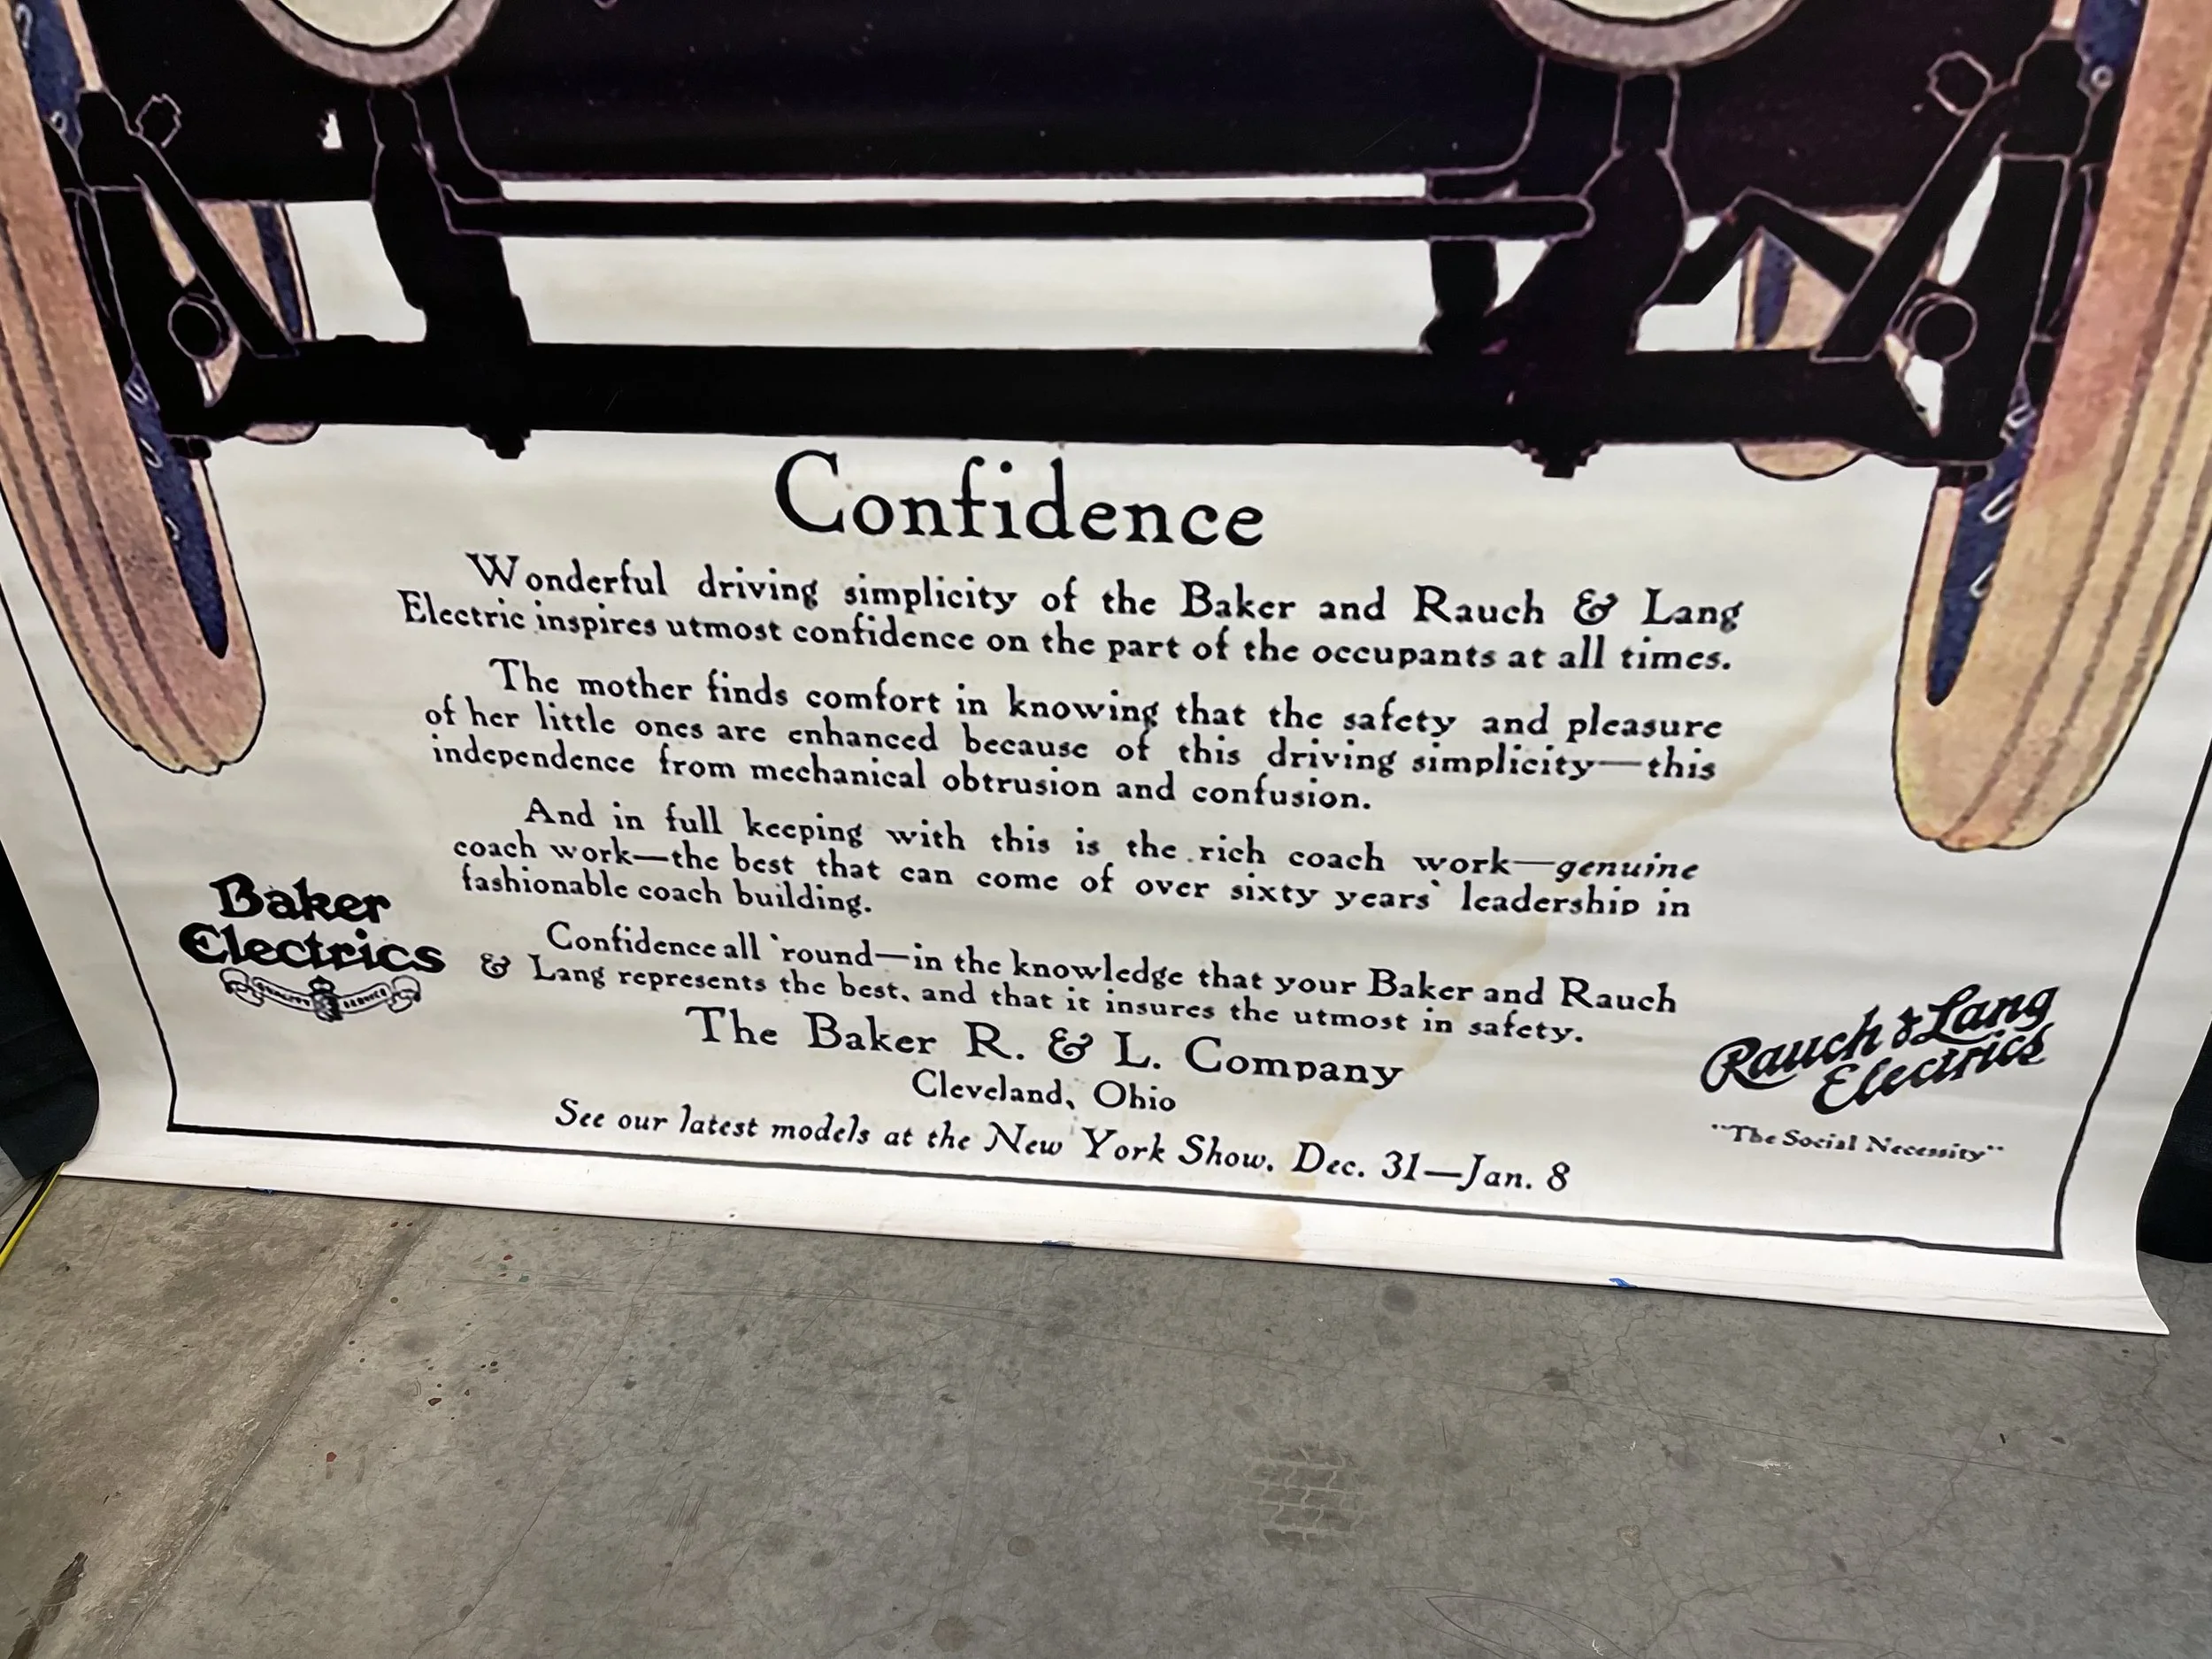 Confidence
Wonderful driving simplicity of the Baker and Rauch & Lang
Electric inspires utmost confidence on the part of the occupants at all times.
The mother finds comfort in knowing that the safety and pleasure
of her little ones are enhanced because of this driving simplicity—this
independence from mechanical obtrusion and confusion.
And in full keeping with this is the rich coach work—genuine
coach work—the best that can come of over sixty years' leadership in
fashionable coach building.
Confidence all 'round—in the knowledge that your Baker and Rauch
& Lang represents the best, and that it insures the utmost in safety.
The Baker R. & L. Company
Cleveland, Ohio
See our latest models at the New York Show, Dec. 31—Jan. 8
Baker
Electrics
QUALITY SERVICE
Rauch & Lang
Electrics
"The Social Necessity"